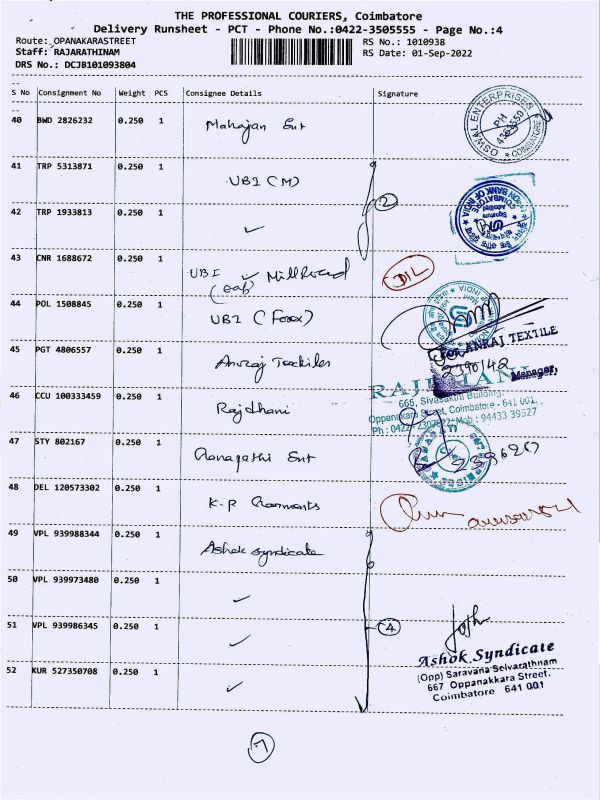 THE PROFESSIONAL COURIERS, Coimbatore
Delivery Runsheet - PCT - Phone No.:0422-3505555 - Page No.:4
Route: OPANAKARASTREET
RS No.: 1010938
Staff: RAJARATHINAM
RS Date: 01-Sep-2022
DRS No.: DCJB101093804
S No Consignment No Weight PCS Consignee Details Signature
40 BWD 2826232 0.250 1 Mahajan Ent
OSWAL ENTERPRISES
PH
4363550
COIMBATORE
41 TRP 5313871 0.250 1 UBI (M)
42 TRP 1933813 0.250 1 ✓
2
COIMBATORE
43 CNR 1688672 0.250 1 UBI ✓ Mill Road
44 POL 1508845 0.250 1 UBI (Forex)
45 PGT 4806557 0.250 1 Anraj Textiles
ANRAJ TEXTILE
2390142
Manager.
46 CCU 100333459 0.250 1 Rajdhani
RAJDHANI
666, Sivasakthi Building,
Oppanakara Street, Coimbatore - 641 001.
47 STY 802167 0.250 1 Ganapathi Ent
48 DEL 120573302 0.250 1 K.P Garments
49 VPL 939988344 0.250 1 Ashok Syndicate
50 VPL 939973480 0.250 1 ✓
51 VPL 939986345 0.250 1 ✓
4
52 KUR 527350708 0.250 1 ✓
Ashok Syndicate
(Opp) Saravana Selvarathnam
667 Oppanakkara Street.
Coimbatore 641 001
7